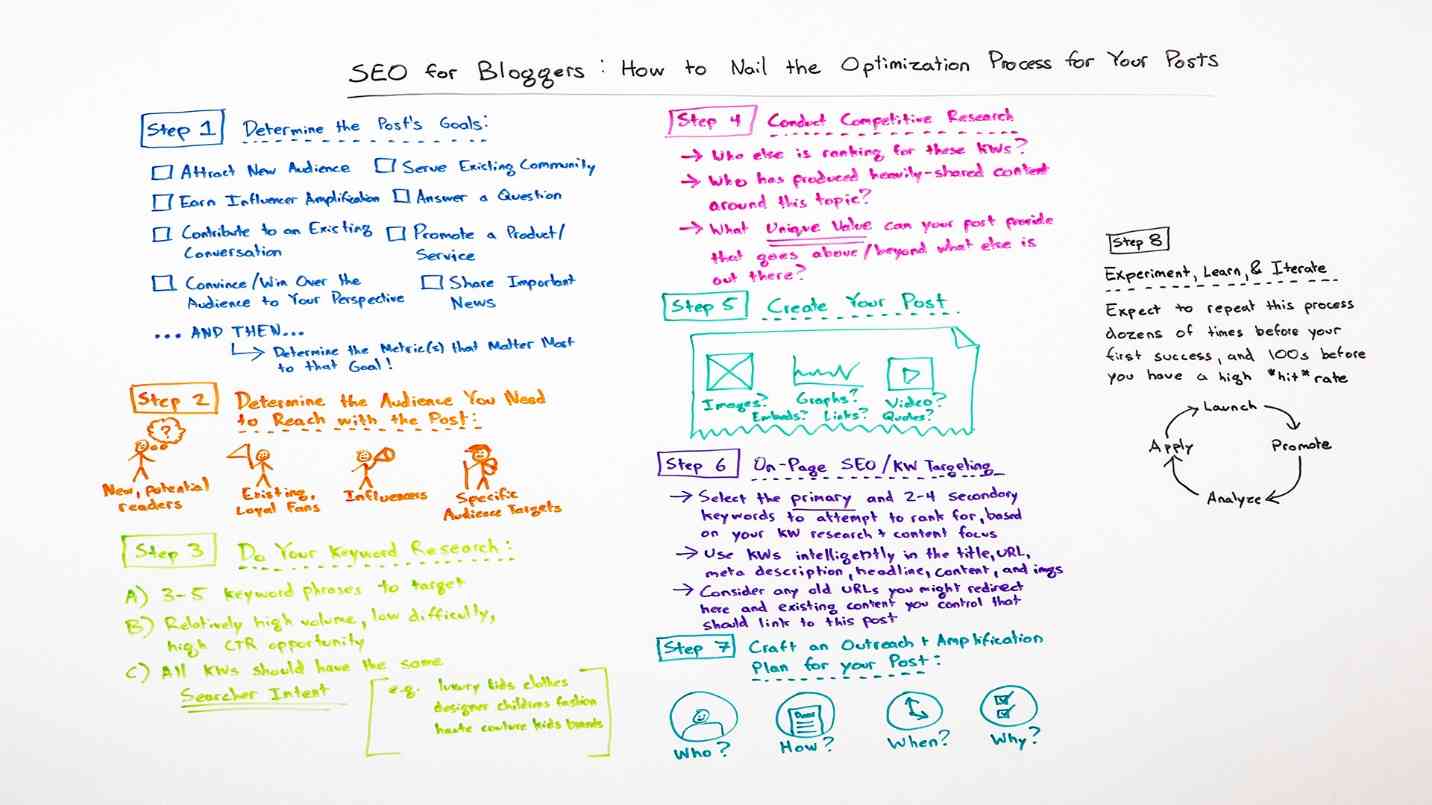 SEO for Bloggers: How to Nail the Optimization Process for Your Posts
Step 1 Determine the Post's Goals:
Attract New Audience
Serve Existing Community
Earn Influencer Amplification
Answer a Question
Contribute to an Existing
Conversation
Promote a Product/
Service
Convince/Win Over the
Audience to Your Perspective
Share Important
News
... AND THEN...
Determine the Metric(s) that Matter Most
to that Goal!
Step 2 Determine the Audience You Need
to Reach with the Post:
?
New, potential
readers
Existing,
Loyal Fans
Influencers
Specific
Audience Targets
Step 3 Do Your Keyword Research:
A) 3-5 keyword phrases to target
B) Relatively high volume, low difficulty,
high CTR opportunity
C) All KWs should have the same
Searcher Intent
e.g. luxury kids clothes
designer childrens fashion
haute couture kids brands
Step 4 Conduct Competitive Research
→ Who else is ranking for these KWs?
→ Who has produced heavily-shared content
around this topic?
→ What Unique Value can your post provide
that goes above/beyond what else is
out there?
Step 5 Create Your Post
Images? Graphs? Video?
Embeds? Links? Quotes?
Step 6 On-Page SEO/KW Targeting
→ Select the primary and 2-4 secondary
keywords to attempt to rank for, based
on your KW research + content focus
→ Use KWs intelligently in the title, URL,
meta description, headline, content, and imgs
→ Consider any old URLs you might redirect
here and existing content you control that
should link to this post
Step 7 Craft an Outreach + Amplification
Plan for your Post:
Who? How? When? Why?
Step 8
Experiment, Learn, & Iterate
Expect to repeat this process
dozens of times before your
first success, and 100s before
you have a high *hit* rate
Launch
Apply Promote
Analyze